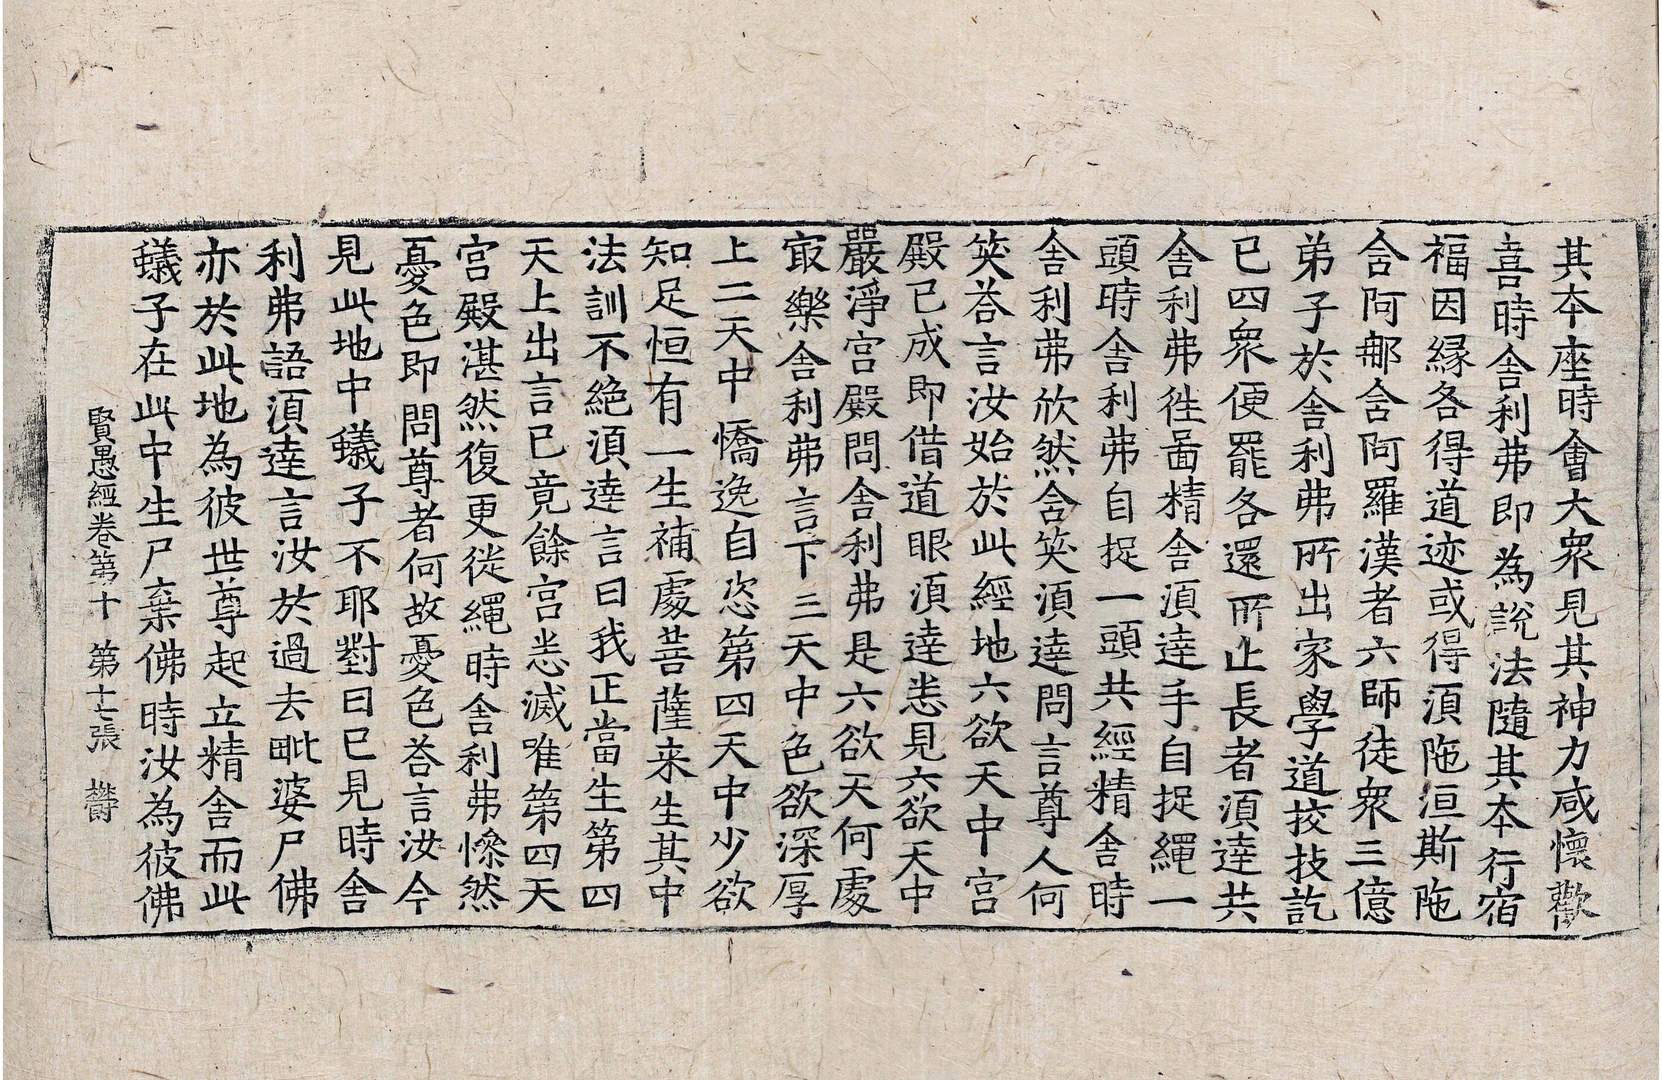 其本座時會大衆見其神力咸懷歡
喜時舎利弗即為說法隨其本行宿
福因緣各得道迹或得湏陁洹斯陁
含阿那含阿羅漢者六師徒衆三億
弟子於舎利弗所出家學道挍技訖
已四衆便罷各還所止長者湏達共
舎利弗徃啚精舎湏達手自捉繩一
頭時舎利弗自捉一頭共經精舎時
舎利弗欣然含笑湏達問言尊人何
笑荅言汝始於此經地六欲天中宮
殿已成即借道眼湏達悉見六欲天中
嚴淨宮殿問舎利弗是六欲天何處
㝡樂舎利弗言下三天中色欲深厚
上二天中憍逸自恣第四天中少欲
知足恒有一生補處菩薩来生其中
法訓不絶湏達言曰我正當生第四
天上出言已竟餘宮悉滅唯第四天
宮殿湛然復更從繩時舎利弗慘然
憂色即問尊者何故憂色荅言汝今
見此地中蟻子不耶對曰已見時舎
利弗語湏達言汝於過去毗婆尸佛
亦於此地為彼世尊起立精舎而此
蟻子在此中生尸棄佛時汝為彼佛
賢愚經卷第十　第十七張　欝